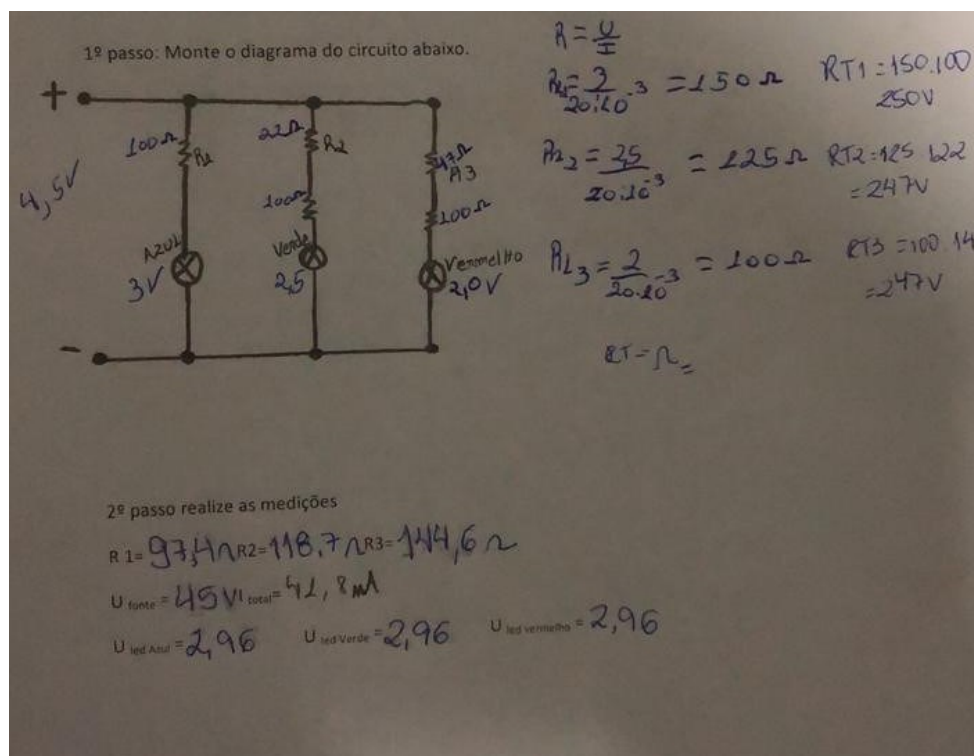 1º passo: Monte o diagrama do circuito abaixo.
+
4,5V
100Ω R1
AZUL
3V
22Ω R2
100Ω
Verde
2,5
47Ω
R3
100Ω
Vermelho
2,0V
-
R = U/I
= 3/20.10-3 = 150Ω
RT1 = 150.100
250V
= 2,5/20.10-3 = 125Ω
RT2 = 125 122
= 247V
RL3 = 2/20.10-3 = 100Ω
RT3 = 100.14
= 247V
RT = Ω =
2º passo realize as medições
R 1= 97,4Ω R2= 118,7Ω R3= 144,6Ω
U fonte = 45V I total = 41,8mA
U led Azul = 2,96 U led Verde = 2,96 U led vermelho = 2,96